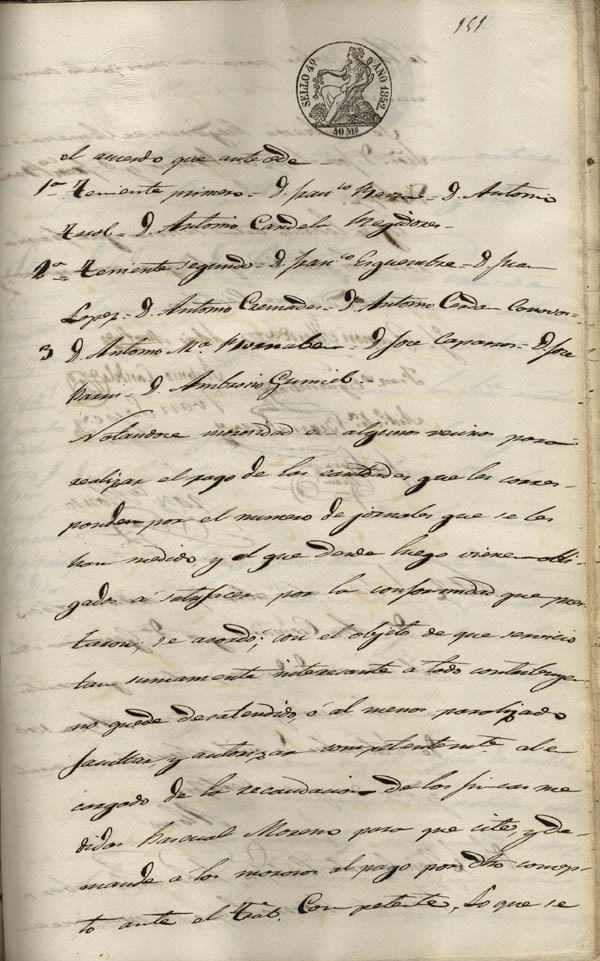 151
SELLO 4º AÑO 1852.
40 Ms
el acuerdo que antecede
1ª Teniente primero = D. Franco = D. Antonio
D. Antonio Candela Regidores
2ª Teniente segundo = D. Franco Esquembre = D.
Lopez = D. Antonio Cremades = D. Antonio Cerda
3 D. Antonio Mª Bernabe = D. Jose Caparros = D. Jose
D. Ambrosio Gumiel
Notandose morosidad en algunos vecinos para
realizar el pago de las cantidades que les corres-
ponden por el numero de jornales que se les
han medido y el que desde luego vienen obli-
gados á satisfacer por la conformidad que pres-
taron; se acordó; con el objeto de que servicio
tan sumamente interesante a todo contribuyen
no quede desatendido, ó al menos paralizado
facultar y autorizar competentemte. al en
cargado de la recaudacion de las fincas me
didas Pascual Moreno para que cite, y de-
mande a los morosos al pago por dho concep-
to ante el Trab. Competente, Lo que se